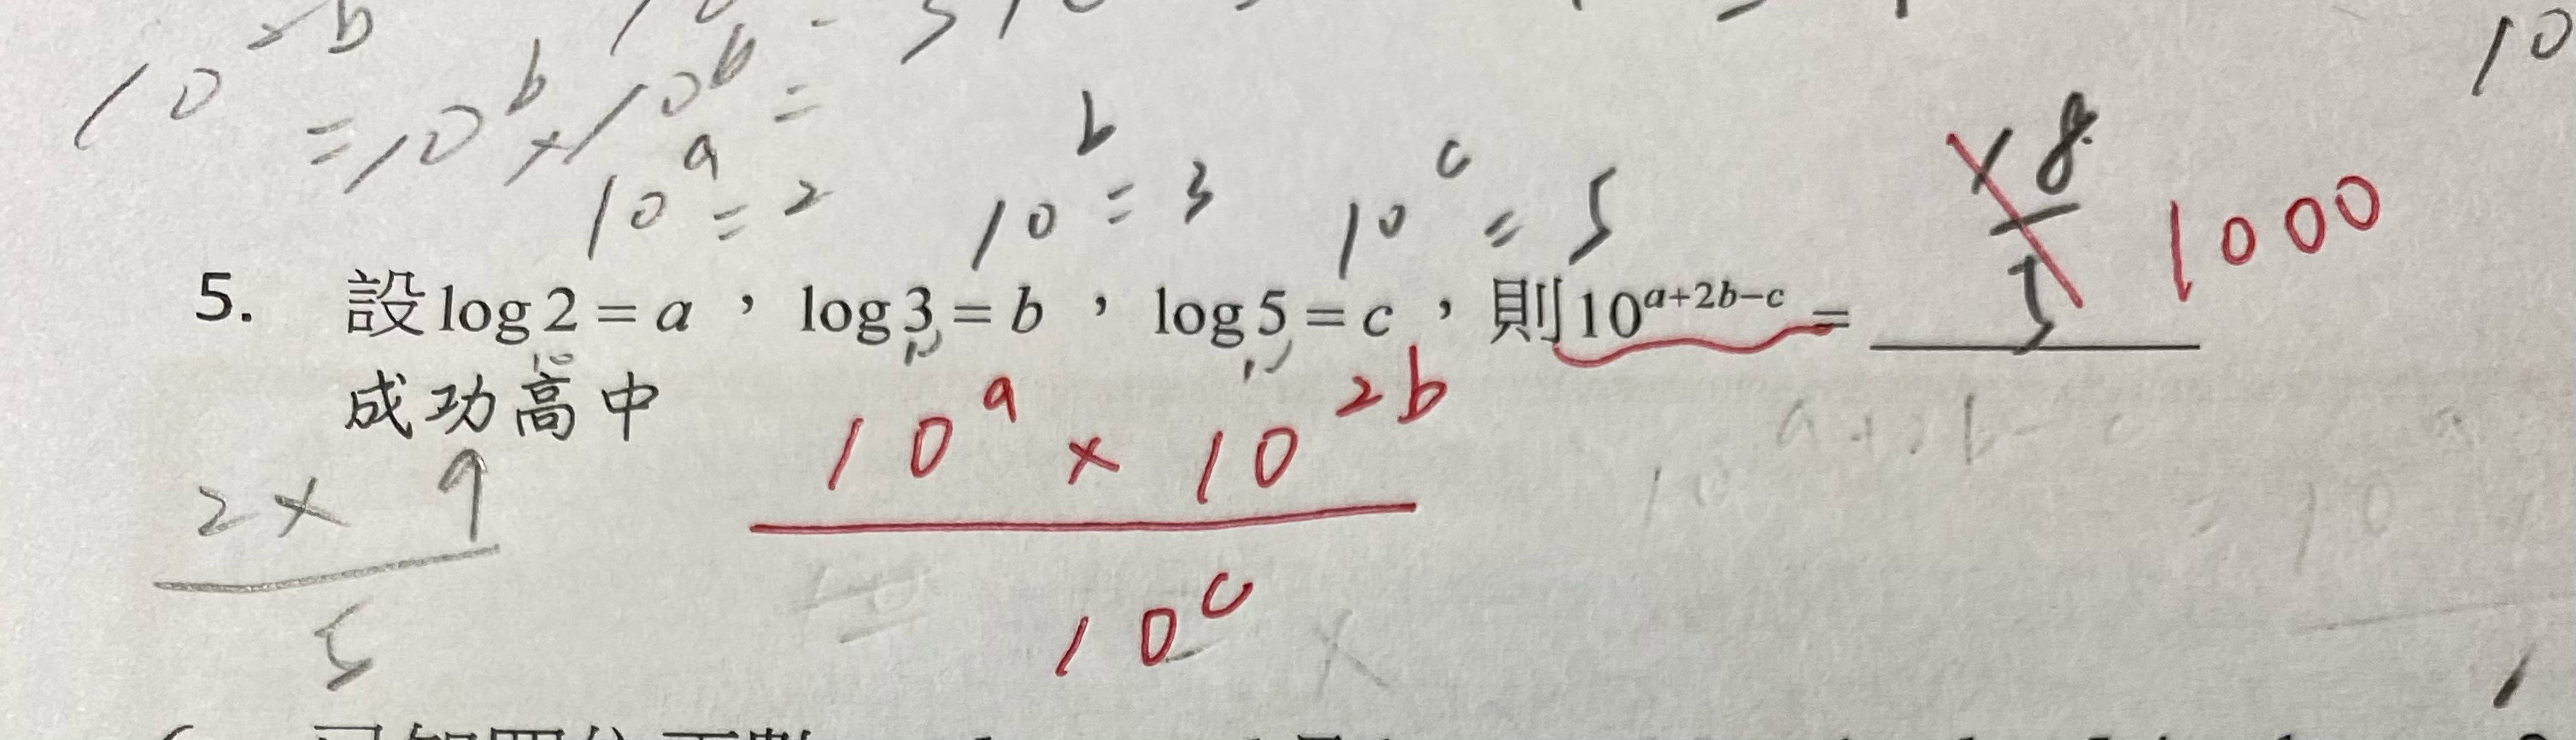 10^{2b} = 10^b × 10^b =
10^a = 2 10^b = 3 10^c = 5
18/5 1000
5. 設 log 2 = a，log 3 = b，log 5 = c，則 10^{a+2b−c} = ____
10 10 10
成功高中
2 × 9 / 5
10^a × 10^{2b} / 10^c